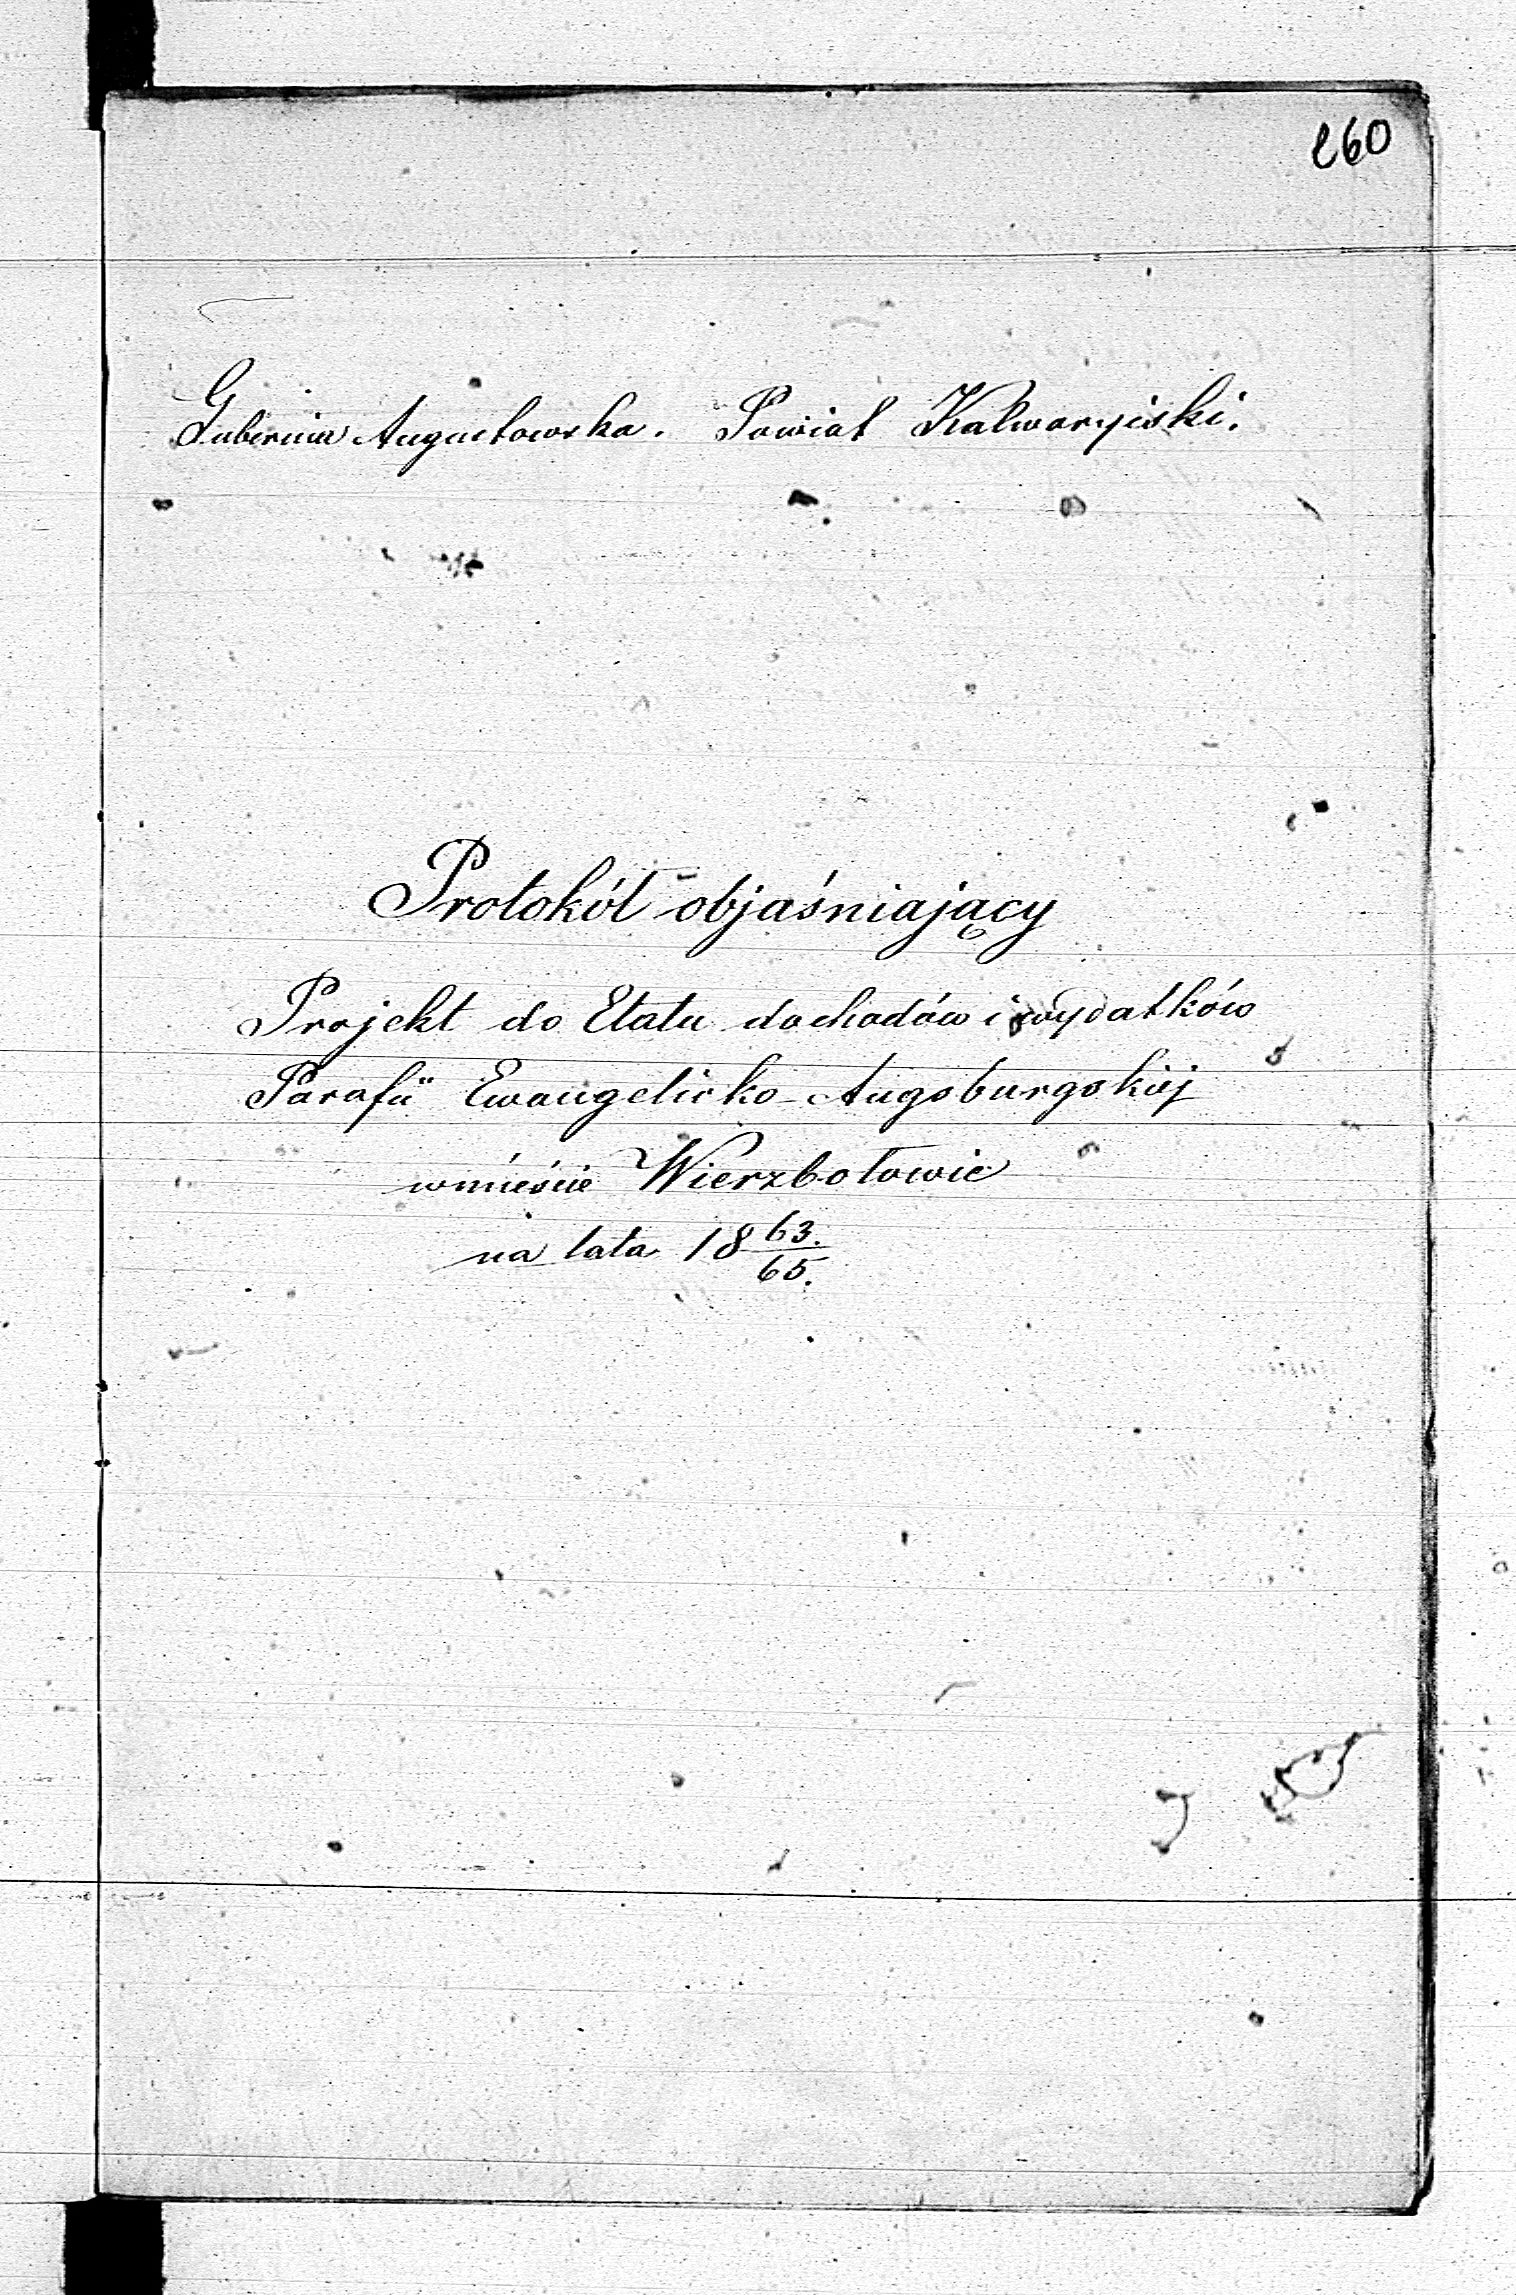 260
Gubernia Augustowska. Powiat Kalwaryiski.
Protokół objaśniający
Projekt do Etatu dochodów i wydatków
Parafii Ewangelicko-Augsburgskiéj
w mieście Wierzbołowie
na lata 18 63./65.